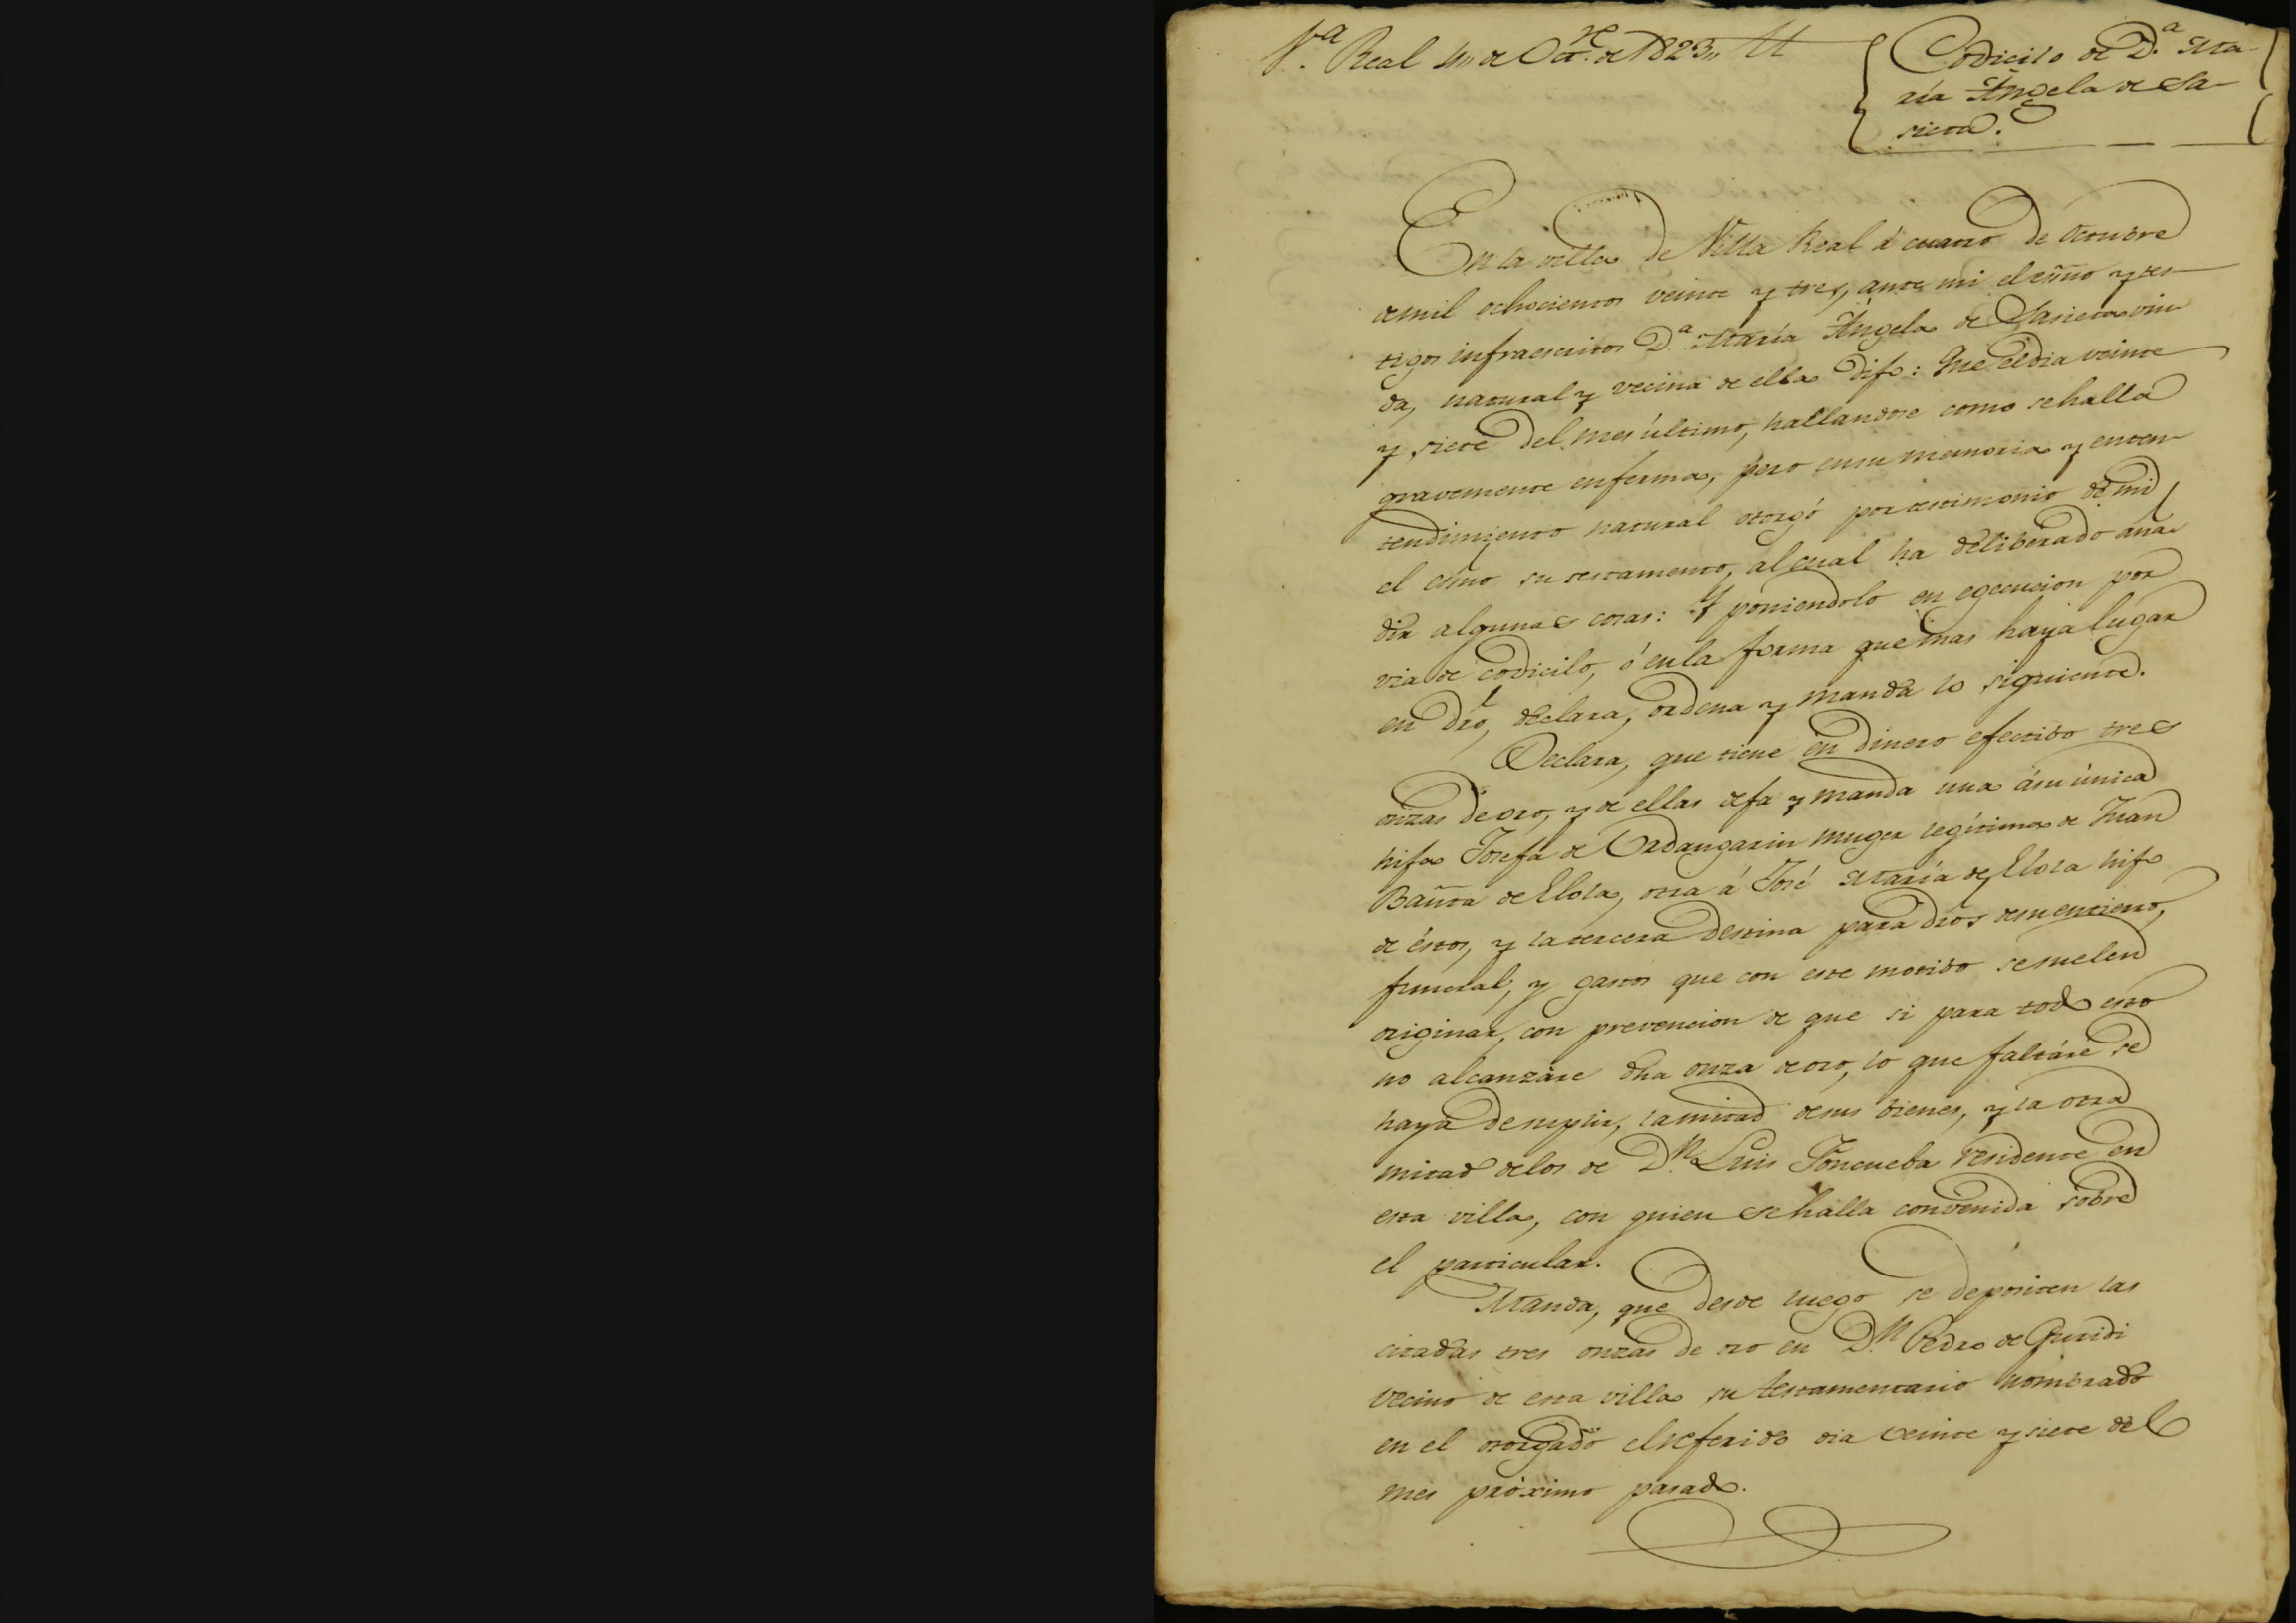 V.ª Real 4,, de Oct.re de 1823,,
Codicilo de D.ª Ma-
ría Ángela de Sa-
sieta.
En la villa de Villa Real á cuatro de Octubre
de mil ochocientos veinte y tres, ante mi el esñno y tes-
tigos infraescritos D.ª María Ángela de Sasieta viu-
da, natural y vecina de ella dijo: Que el dia veinte
y siete del mes último, hallandose como se halla
gravemente enferma, pero en su memoria y enten-
tendimiento natural otorgó por testimonio de mi
el esñno su testamento, al cual ha deliberado aña-
dir algunas cosas: Y poniendolo en egecucion por
via de codicilo, ó en la forma que mas haya lugar
en dro, declara, ordena y manda lo siguiente.
Declara, que tiene en dinero efectivo tres
onzas de oro, y de ellas deja y manda una á su única
hija Josefa de Ordangarin muger legítima de Juan
Bañta de Elola, otra á José María de Elola hijo
de éstos, y la tercera destina para dros de su entierro,
funeral, y gastos que con este motivo se suelen
originar, con prevencion de que si para todo esto
no alcanzáre dha onza de oro, lo que faltáre se
haya de suplir, la mitad de sus bienes, y la otra
mitad de los de D.n Luis Foncueba residente en
esta villa, con quien se halla convenida sobre
el particular.
Manda, que desde luego se depositen las
citadas tres onzas de oro en D.n Pedro de Guridi
vecino de esta villa su testamentario nombrado
en el otorgado el referido dia veinte y siete del
mes próximo pasado.